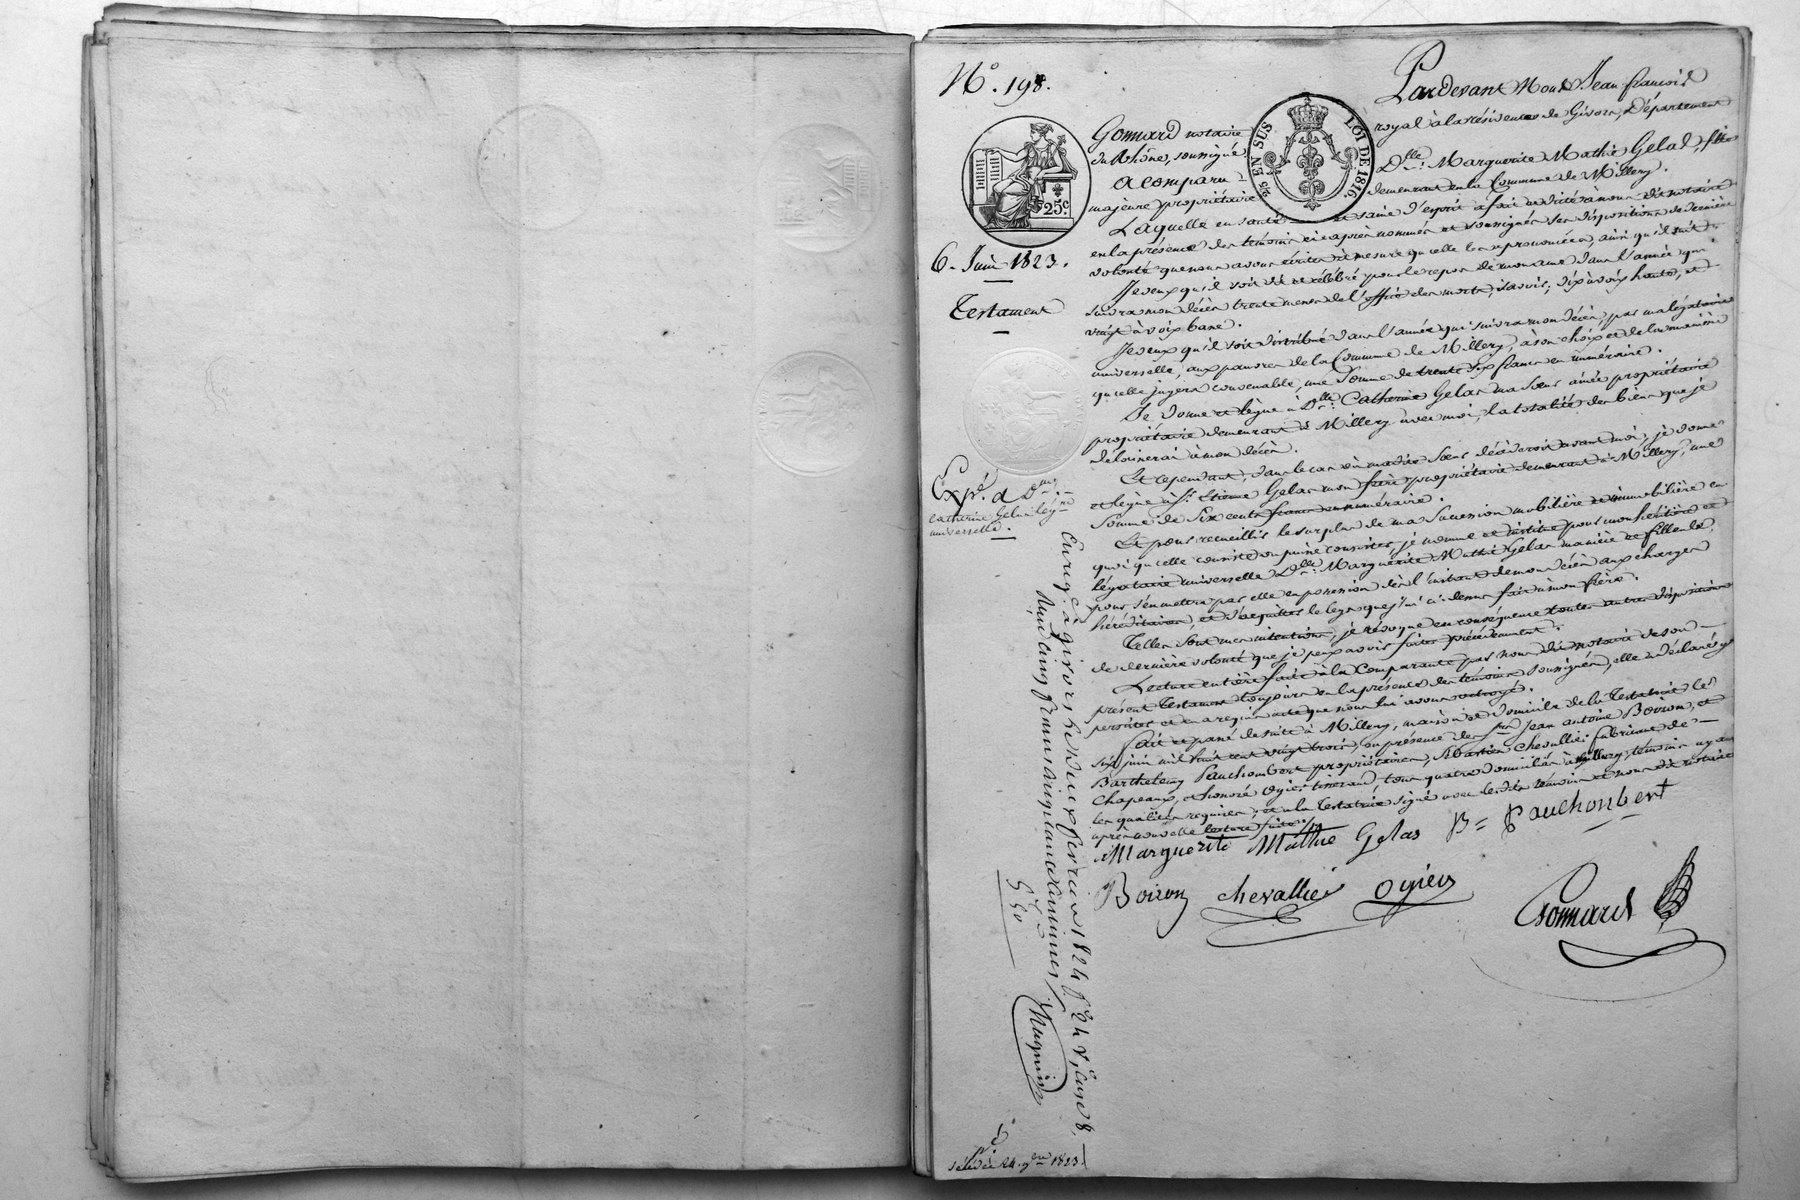 N.° 198.
Pardevant Nous Jean françois
Gonnard notaire royal à la résidence de Givors, Département
du Rhône, soussigné
A comparu D.lle Marguerite Mathie Gelas, fille
majeure propriétaire demeurant en la Commune de Millery.
25 EN SUS LOI DE 1816
25c
6. Juin 1823.
Testament
Laquelle en santé et saine d'esprit a fait et dicté à nous dit notaire
en la présence des témoins ci-après nommés et soussignés ses dispositions de dernière
volonté que nous avons écrites à mesure qu'elle les a prononcées, ainsi qu'il suit.
Je veux qu'il soit dit et célébré pour le repos de mon ame dans l'année qui
suivra mon décès trente messes de l'office des morts, savoir; dix à voix haute, et
vingt à voix basse.
Je veux qu'il soit distribué dans l'année qui suivra mon décès, par ma légataire
universelle, aux pauvres de la Commune de Millery, à son choix et de la manière
qu'elle jugera convenable, une somme de trente six francs en numéraire.
Je donne et lègue à D.lle Catherine Gelas ma sœur ainée propriétaire
propriétaire demeurant à Millery avec moi, la totalité des biens que je
délaisserai à mon décès.
Et cependant, dans le cas où ma dite sœur décèderoit avant moi, je donne
et lègue à S.r Etienne Gelas mon frère propriétaire demeurant à Millery, une
somme de six cents francs en numéraire.
Exp.é a D.lle
Catherine Gelas lég.re
universelle.
Et pour recueillir le surplus de ma succession mobilière et immobilière en
quoi qu'elle consiste ou puisse consister, je nomme et institue pour mon héritière et
légataire universelle D.lle Marguerite Mathie Gelas ma nièce et filleule,
pour s'en mettre par elle en possession dès l'instant de mon décès aux charges
héréditaires, et d'acquitter le legs que j'ai ci-dessus fait à mon frère.
Telles sont mes intentions, je révoque en conséquence toutes autres dispositions
de dernière volonté que je peux avoir faites précédemment.
Lecture entière faite à la Comparante par nous dit notaire de son
présent testament toujours en la présence des témoins soussignés, elle a déclaré y
persister et en a requis acte que nous lui avons octroyé.
Fait et passé de suite à Millery, maison et domicile de la Testatrice le
six juin mil huit cent vingt trois, en présence de S.rs Jean antoine Boiron, et
Barthelemy Pauchombert propriétaires, Chevallier fabricant de
chapeaux, et honoré Ogier tisserand tous quatre domiciliés à Millery, témoins ayant
les qualités requises; et a la Testatrice signé avec lesdits témoins et nous dit notaire
après nouvelle lecture faite.
Marguerite Mathie Gelas B= Pauchonbert
Boiron chevallier Ogier
Gonnard
Enreg.é à givors le deux février 1824 f.° 24 v.° case 8,
Reçu cinq francs cinquante centimes
5 50
1823